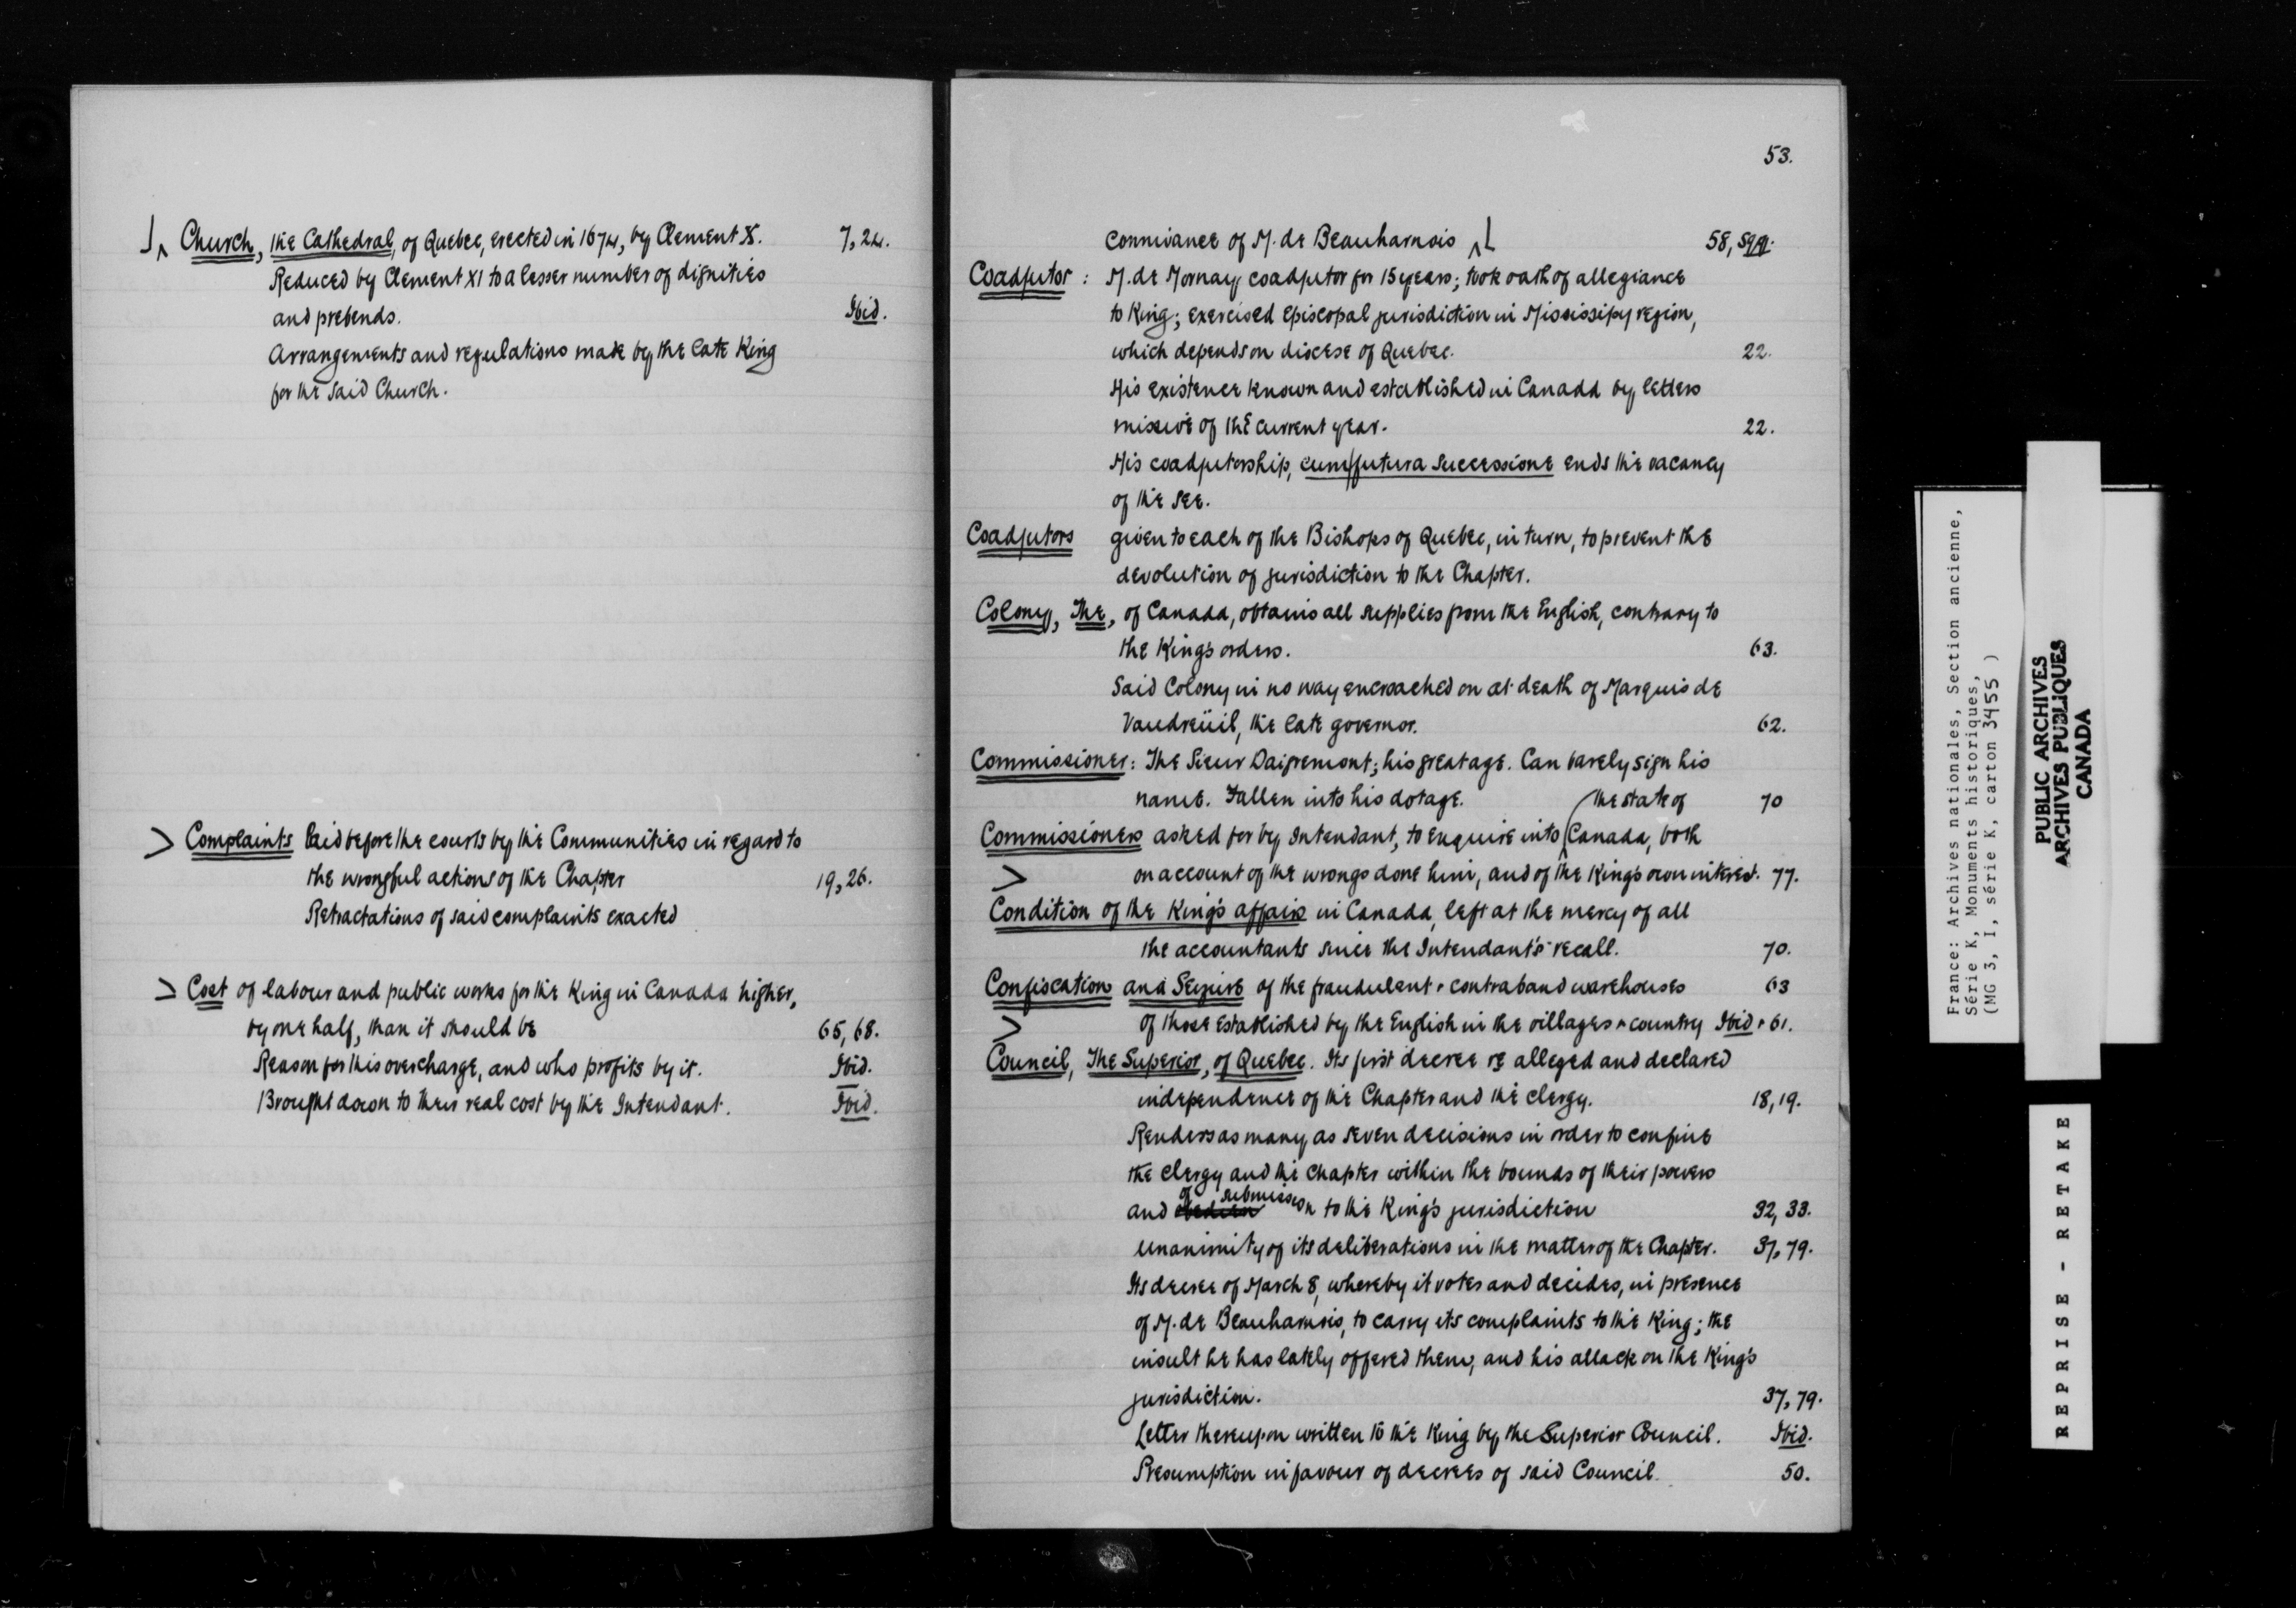 Church, the Cathedral, of Quebec, erected in 1674, by Clement X. 7, 24.
Reduced by Clement XI to a lesser number of dignities
and prebends. Ibid.
Arrangements and regulations made by the late King
for the said Church.
> Complaints laid before the courts by the Communities in regard to
the wrongful actions of the Chapter 19, 26.
Retractations of said complaints exacted
> Cost of labour and public works for the King in Canada higher,
by one half, than it should be 65, 68.
Reason for this overcharge, and who profits by it. Ibid.
Brought down to their real cost by the Intendant. Ibid.
53.
connivance of M. de Beauharnois 58, sqq.
Coadjutor : M. de Mornay, coadjutor for 15 years; took oath of allegiance
to King; exercised Episcopal jurisdiction in Mississipy region,
which depends on diocese of Quebec. 22.
His existence known and established in Canada by letters
missive of the current year. 22.
His coadjutorship, cum futura successione ends the vacancy
of the see.
Coadjutors given to each of the Bishops of Quebec, in turn, to prevent the
devolution of jurisdiction to the Chapter.
Colony, The, of Canada, obtains all supplies from the English, contrary to
the King's orders. 63.
Said Colony in no way encroached on at death of Marquis de
Vaudreüil, the late governor. 62.
Commissioner: The Sieur Daigremont; his great age. Can barely sign his
name. Fallen into his dotage. 70
the state of
Commissioners asked for by Intendant, to enquire into Canada, both
> on account of the wrongs done him, and of the King's own interest. 77.
Condition of the King's affairs in Canada, left at the mercy of all
the accountants since the Intendant's recall. 70.
Confiscation and Seizure of the fraudulent & contraband warehouses 63
> of those established by the English in the villages & country Ibid & 61.
Council, The Superior, of Quebec. Its first decree re alleged and declared
independence of the Chapter and the clergy. 18, 19.
Renders as many as seven decisions in order to confine
the clergy and the Chapter within the bounds of their powers
of submission
and obedien to the King's jurisdiction 32, 33.
Unanimity of its deliberations in the matter of the Chapter. 37, 79.
Its decree of March 8, whereby it votes and decides, in presence
of M. de Beauharnois, to carry its complaints to the King; the
insult he has lately offered them, and his attack on the King's
jurisdiction. 37, 79.
Letter thereupon written to the King by the Superior Council. Ibid.
Presumption in favour of decrees of said Council. 50.
France: Archives nationales, Section ancienne,
Série K, Monuments historiques,
(MG 3, I, série K, carton 3455 )
PUBLIC ARCHIVES
ARCHIVES PUBLIQUES
CANADA
REPRISE - RETAKE